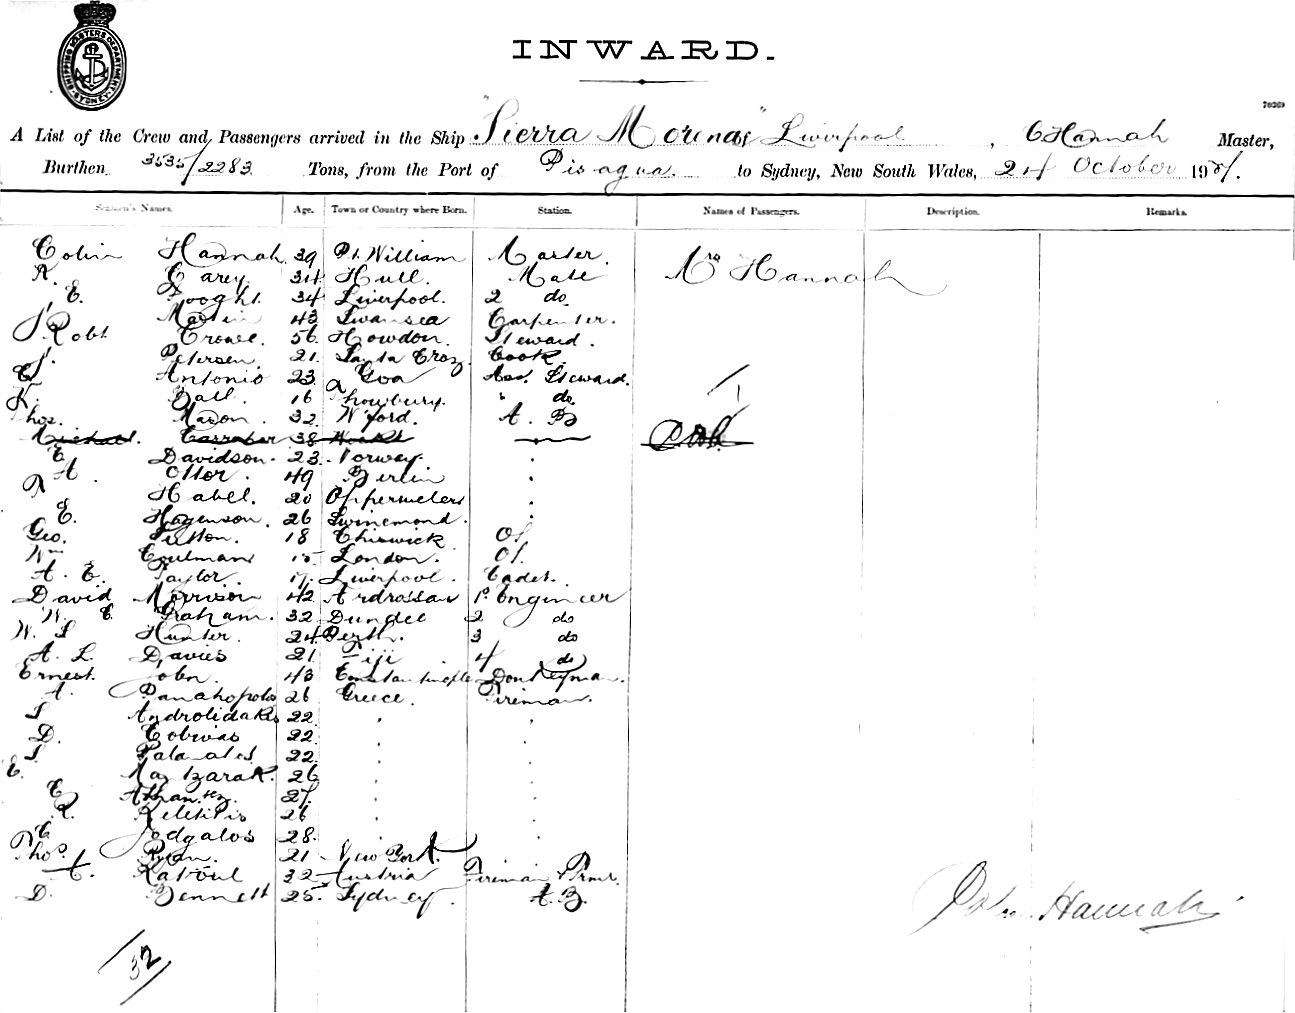 SHIPPING MASTERS DEPARTMENT SYDNEY
INWARD.
70269
A List of the Crew and Passengers arrived in the Ship "Sierra Morena" of Liverpool, C Hannah Master,
Burthen 3535/2283 Tons, from the Port of Pisagua. to Sydney, New South Wales, 24 October 19
Seamen's Names. Age. Town or Country where Born. Station. Names of Passengers. Description. Remarks.
Colin Hannah 39 Pt. William Master. Mrs Hannah
R. Carey 34 Hull. Mate
E. 34 Liverpool. 2 do
J. Martin 43 Swansea Carpenter.
Robt Crowe. 56 Howdon. Steward.
J. Petersen. 21. Santa Croz. Cook.
C. Antonio 23. Goa Ass. Steward. 1
K. Ball. 16 " do
Thos. Mason. 32. W'ford. A. B
Michael. 38
E. Davidson. 23. Norway. .
A. Ottor. 49 Berlin .
A Habel. 20 .
E. Hagenson. 26 Swinemond. .
Geo. Sutton. 18 Chiswick OS
Wm Coulman 15 London. OS.
A. E. Taylor. 17. Liverpool. Cadet.
David Morrison 42 Ardrossan 1st Engineer
W. C. Graham. 32 Dundee 2 do
W. S Hunter. 24 Perth. 3 do
A. L. Davies 21. Fiji 4 do
Ernest. John. 43 Constantinople Donkeyman.
A. Panahopolo 26 Greece. Fireman.
S Androlidakis 22. . .
D. Cobivas 22. . .
S. 22. . .
E. Mazbarak. 26 . .
E 27. . .
R. 26 . .
E Jodgalos 28. . .
Thos. Ryan. 21 New York.
32 Austria Fireman & Trmr.
D. Bennett 25. Sydney. A.B.
Colin Hannah
32